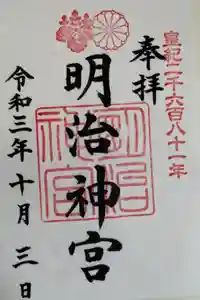 皇紀二千六百八十一年
奉拝
明治神宮
明治神宮
令和三年十月三日